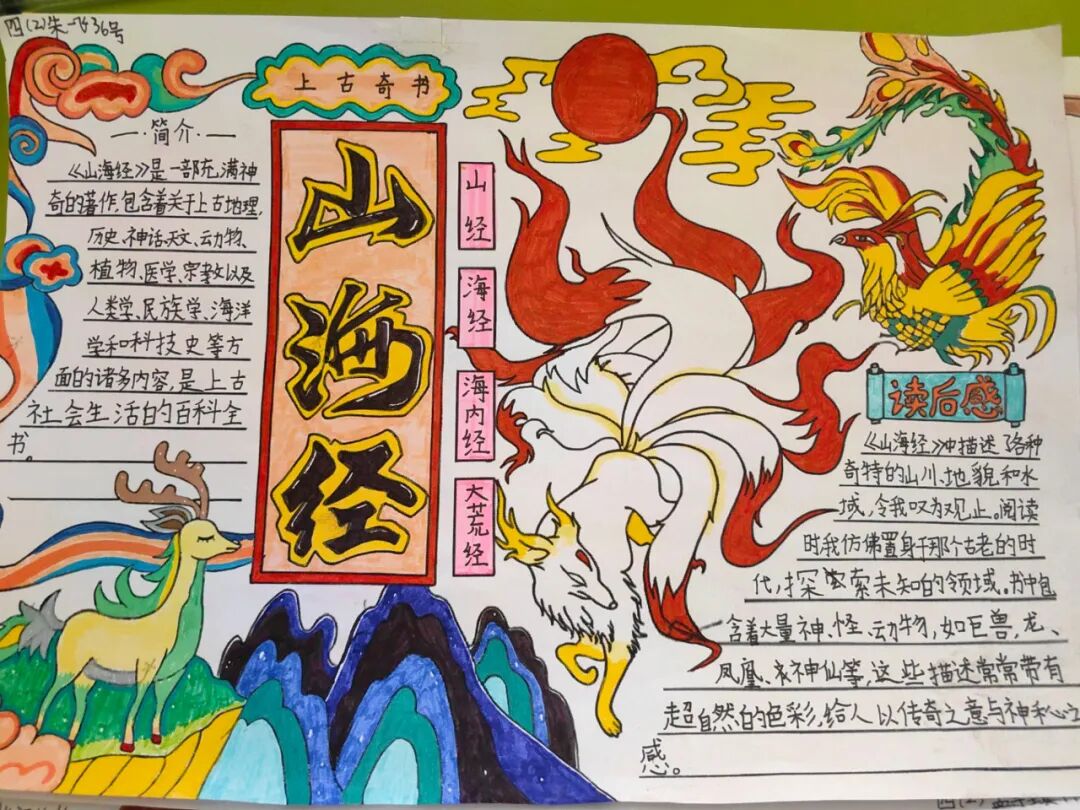 四(2)朱一飞36号
上古奇书
山海经
山经
海经
海内经
大荒经
—简介·—
《山海经》是一部充满神
奇的著作,包含着关于上古地理,
历史、神话、天文、动物、
植物、医学、宗教以及
人类学、民族学、海洋
学和科技史等方
面的诸多内容,是上古
社会生活的百科全
书。
读后感
《山海经》中描述了各种
奇特的山川、地貌和水
域,令我叹为观止。阅读
时我仿佛置身于那个古老的时
代,探索未知的领域。书中包
含着大量神、怪、动物,如巨兽,龙、
凤凰、神仙等,这些描述常常带有
超自然的色彩,给人以传奇之意与神秘之
感。